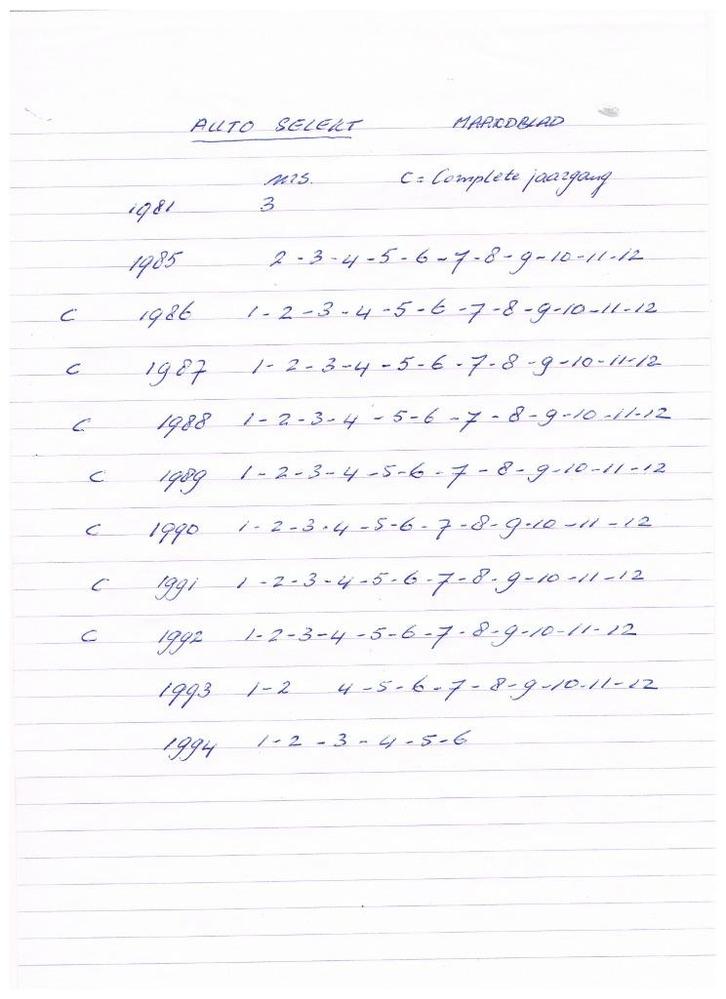 AUTO SELEKT MAANDBLAD
nrs. C = Complete jaargang
1981 3
1985 2-3-4-5-6-7-8-9-10-11-12
C 1986 1-2-3-4-5-6-7-8-9-10-11-12
C 1987 1-2-3-4-5-6-7-8-9-10-11-12
C 1988 1-2-3-4-5-6-7-8-9-10-11-12
C 1989 1-2-3-4-5-6-7-8-9-10-11-12
C 1990 1-2-3-4-5-6-7-8-9-10-11-12
C 1991 1-2-3-4-5-6-7-8-9-10-11-12
C 1992 1-2-3-4-5-6-7-8-9-10-11-12
1993 1-2 4-5-6-7-8-9-10-11-12
1994 1-2-3-4-5-6